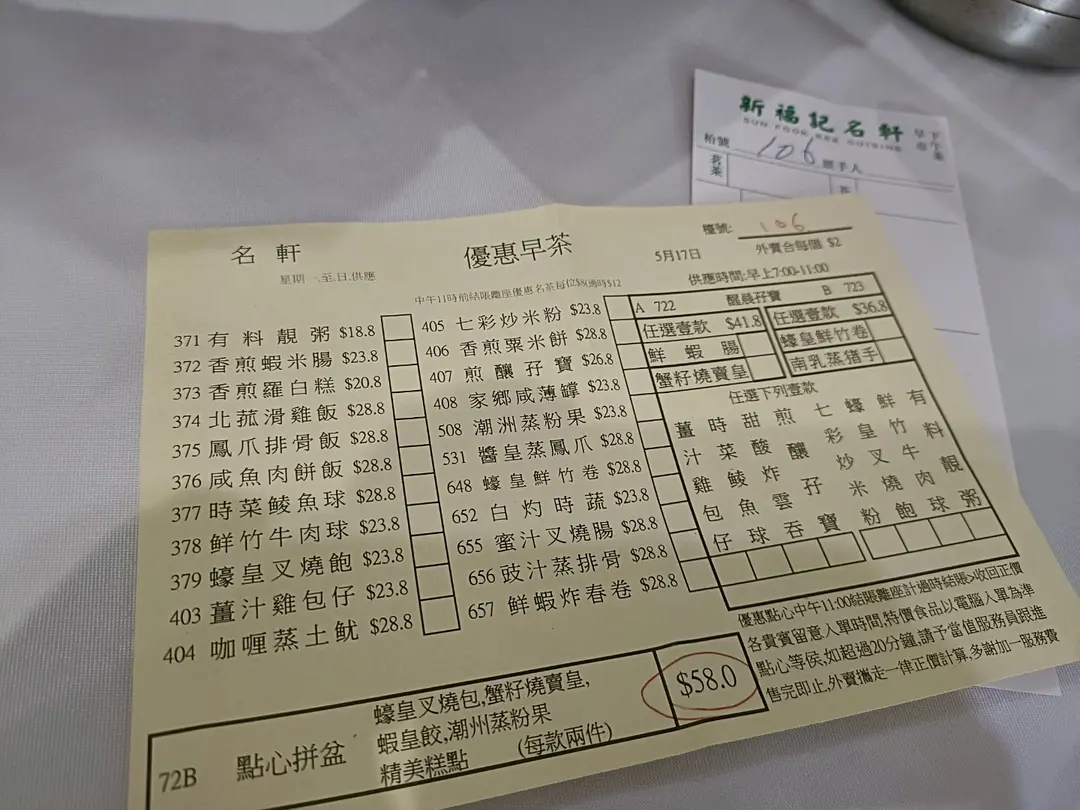 新福記名軒
早下
市午
茶
SUN FOOK KEE CUISINE
枱號 106 經手人
茗茶
名軒
優惠早茶
5月17日
檯號: 106
外賣合每個 $2
星期一至日供應
中午11時前結賬離座優惠名茶每位$8(過時$12
供應時間:早上7:00-11:00
371 有料靚粥 $18.8
372 香煎蝦米腸 $23.8
373 香煎羅白糕 $20.8
374 北菰滑雞飯 $28.8
375 鳳爪排骨飯 $28.8
376 咸魚肉餅飯 $28.8
377 時菜鯪魚球 $28.8
378 鮮竹牛肉球 $23.8
379 蠔皇叉燒飽 $23.8
403 薑汁雞包仔 $23.8
404 咖喱蒸土魷 $28.8
405 七彩炒米粉 $23.8
406 香煎粟米餅 $28.8
407 煎釀孖寶 $26.8
408 家鄉咸薄罉 $23.8
508 潮洲蒸粉果 $23.8
531 醬皇蒸鳳爪 $28.8
648 蠔皇鮮竹卷 $28.8
652 白灼時蔬 $23.8
655 蜜汁叉燒腸 $28.8
656 豉汁蒸排骨 $28.8
657 鮮蝦炸春卷 $28.8
A 722 醒晨孖寶 B 723
任選壹款 $41.8
鮮蝦腸
蟹籽燒賣皇
任選壹款 $36.8
蠔皇鮮竹卷
南乳蒸猪手
任選下列壹款
有料靚粥
鮮竹牛肉球
蠔皇叉燒飽
七彩炒米粉
煎釀孖寶
甜酸炸雲吞
時菜鯪魚球
薑汁雞包仔
優惠點心中午11:00結賬離座計過時結賬>收回正價
各貴賓留意入單時間,特價食品以電腦入單為準
點心等侯,如超過20分鐘,請予當值服務員跟進
售完即止,外賣攜走一律正價計算,多謝加一服務費
72B 點心拼盆
蠔皇叉燒包,蟹籽燒賣皇,
蝦皇餃,潮州蒸粉果
精美糕點 (每款兩件)
$58.0